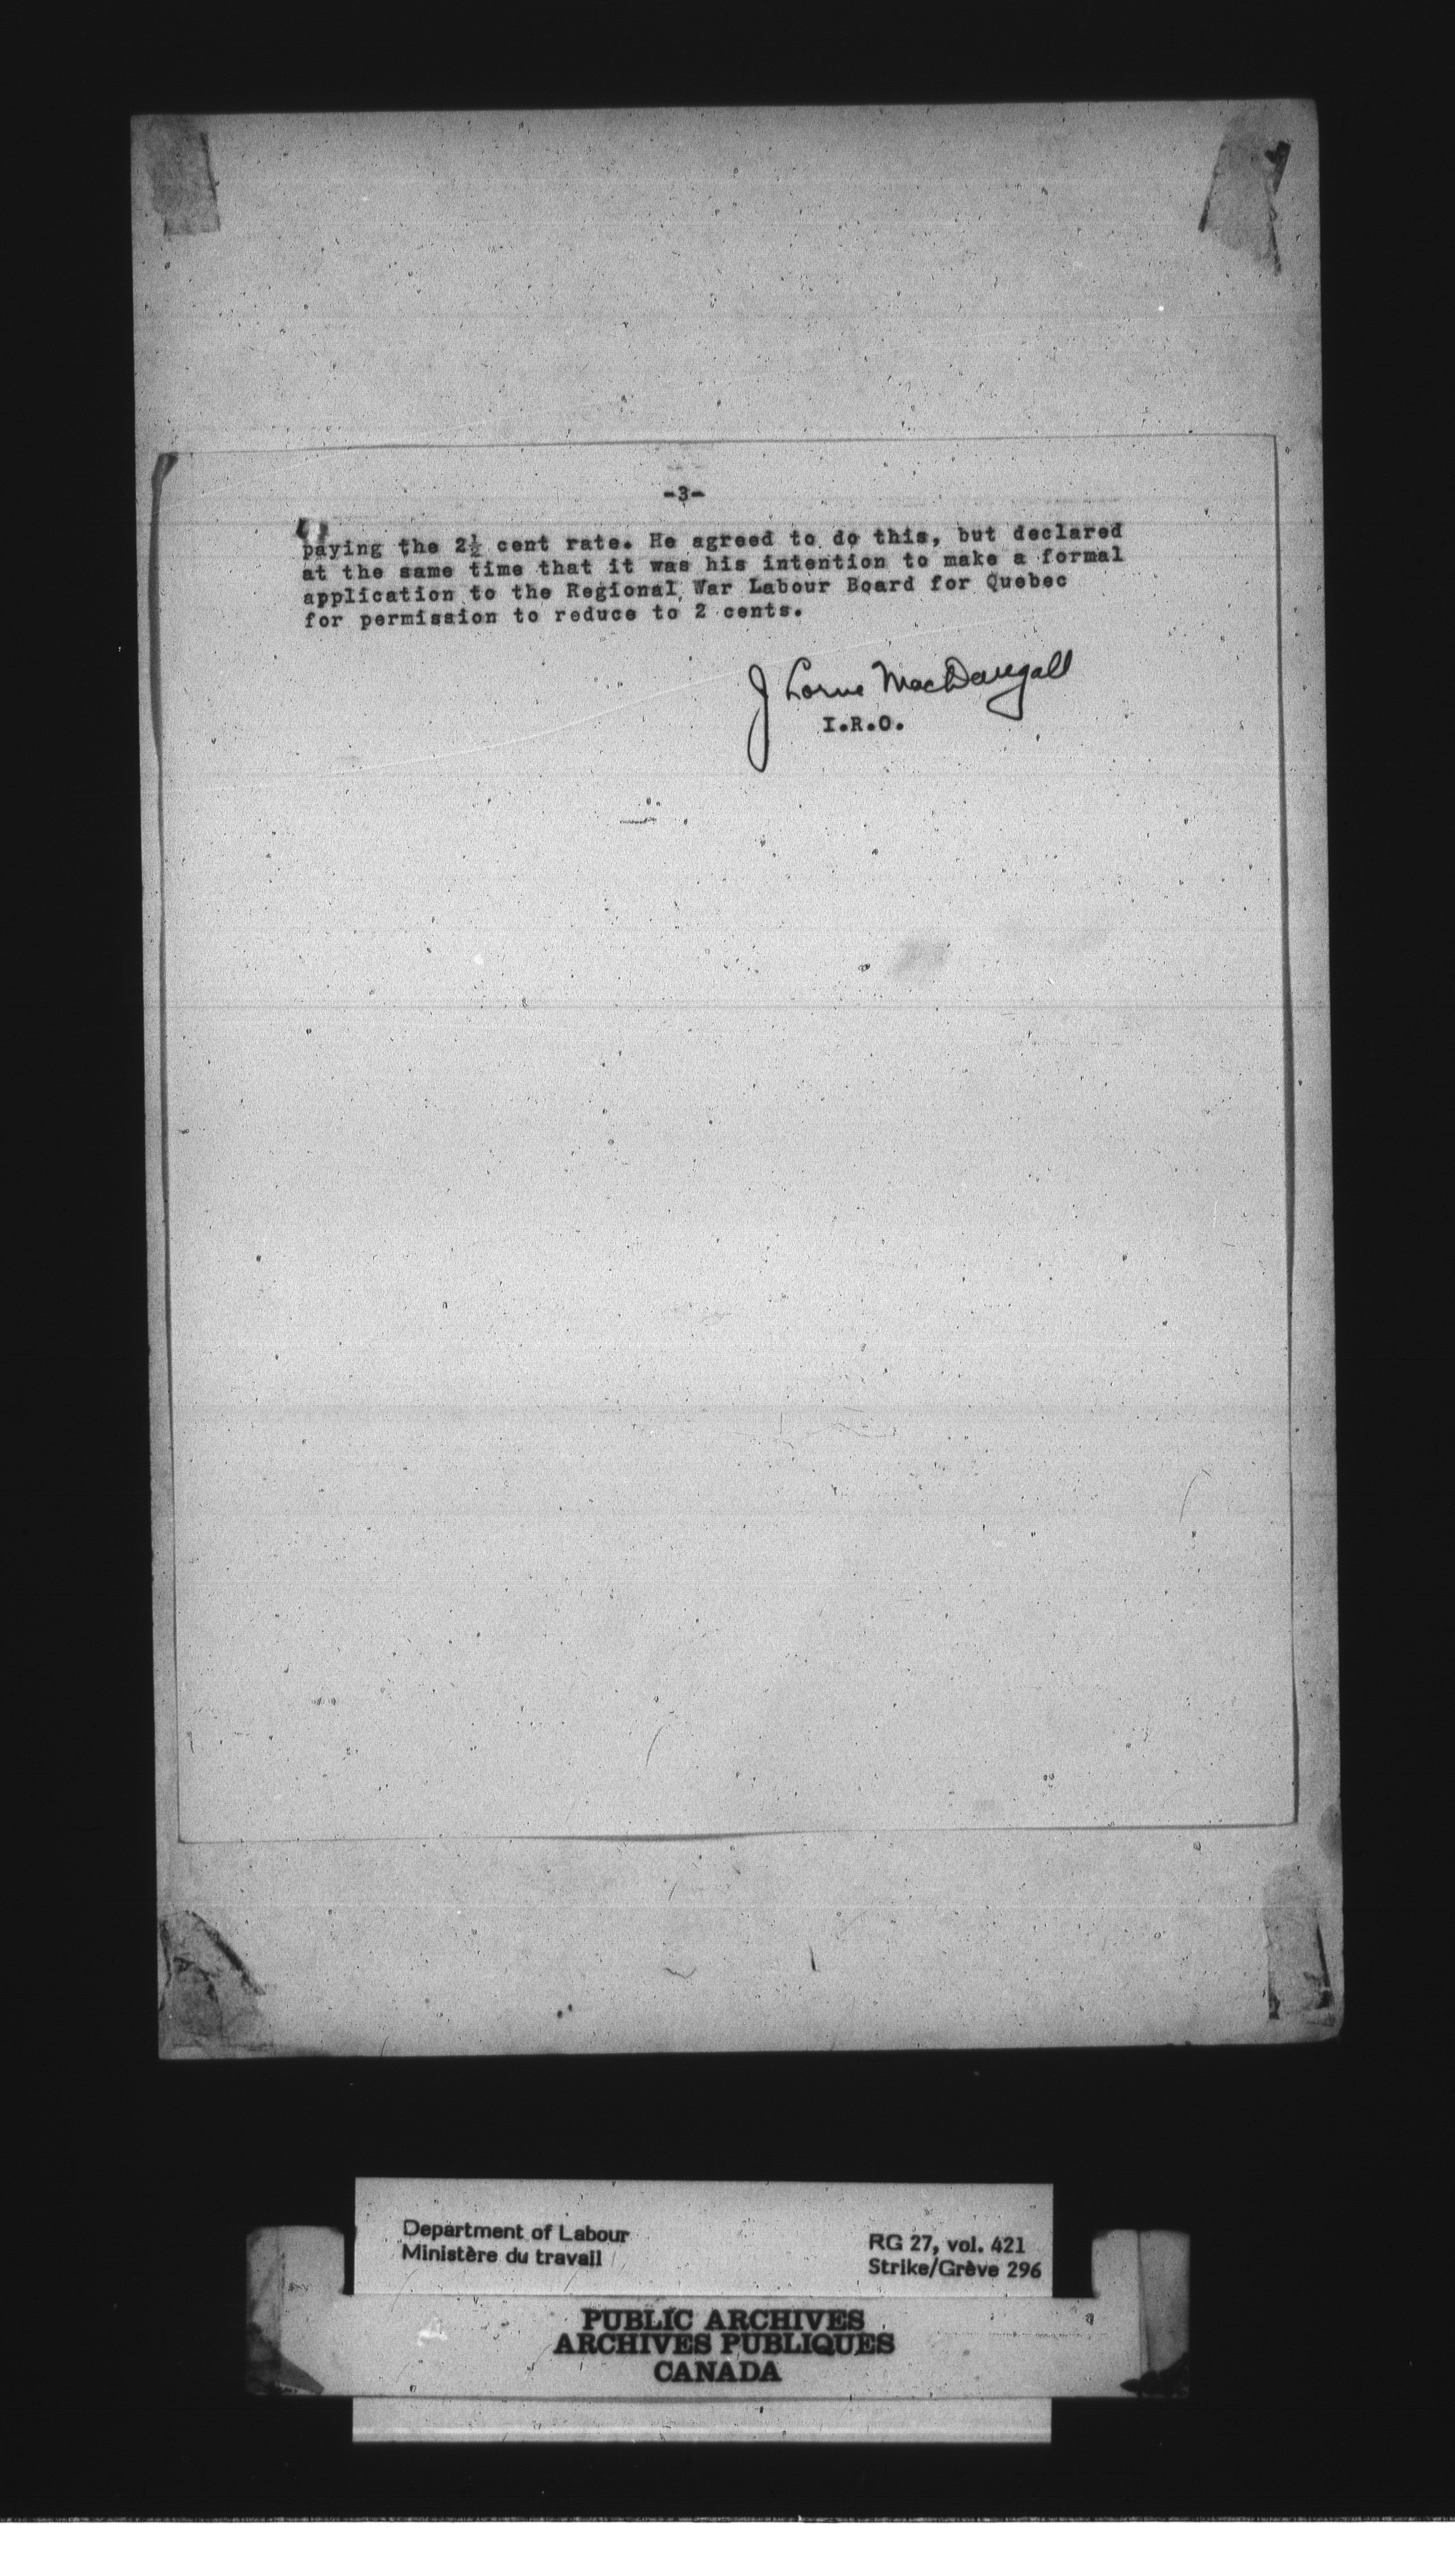 -3-
paying the 2½ cent rate. He agreed to do this, but declared
at the same time that it was his intention to make a formal
application to the Regional War Labour Board for Quebec
for permission to reduce to 2 cents.
J Lorne MacDougall
I.R.O.
Department of Labour
Ministère du travail
RG 27, vol. 421
Strike/Grève 296
PUBLIC ARCHIVES
ARCHIVES PUBLIQUES
CANADA